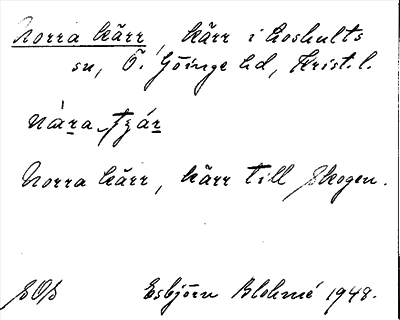 Norra kärr, kärr i Loshults
sn, Ö. Göinge hd, Krist. l.
Nàra
Norra kärr, kärr till skogen.
Esbjörn Blohmé 1948.